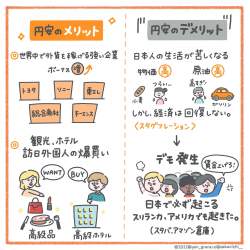 円安のメリット
世界中で外貨を稼げる強い企業
ボーナス 増
トヨタ
ソニー
東エレ
総合商社
観光、ホテル
訪日外国人の爆買い
WANT
BUY
高級品
高級ホテル
円安のデメリット
日本人の生活が苦しくなる
物価 高
原油 高
小麦
ガソリン
しかし、経済は回復しない。
<スタグフレーション>
デモ発生
賃金上げろ!
日本で必ず起こる
スリランカ、アメリカでも起きた。
(スタバ、アマゾン倉庫)